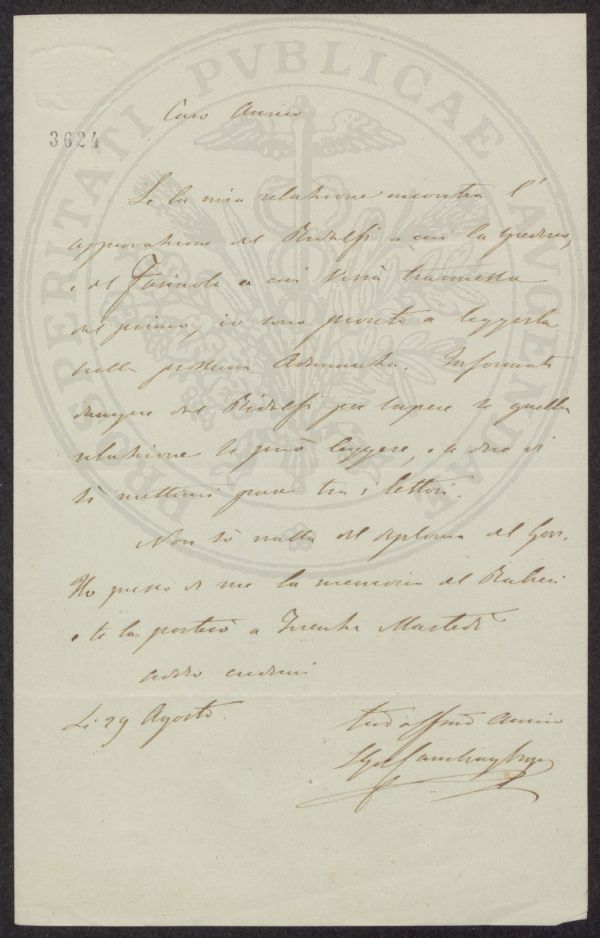 PROSPERITATI PVBLICAE AVGENDAE
3624
Caro Amico
Se la mia relazione incontra l'
approvazione del Ridolfi a cui la
e del a cui verrà trasmessa
dal primo, io sono pronto a leggerla
nella prossima Adunanza. Informati
dunque dal Ridolfi per sapere se quella
relazione si può leggere, e in
si mettimi pure tra i lettori.
Non so nulla del diploma del
Ho presso di me la memoria del
e te la porterò a Firenze Martedì
addio credimi
Li 29 Agosto.
tuo affmo Amico